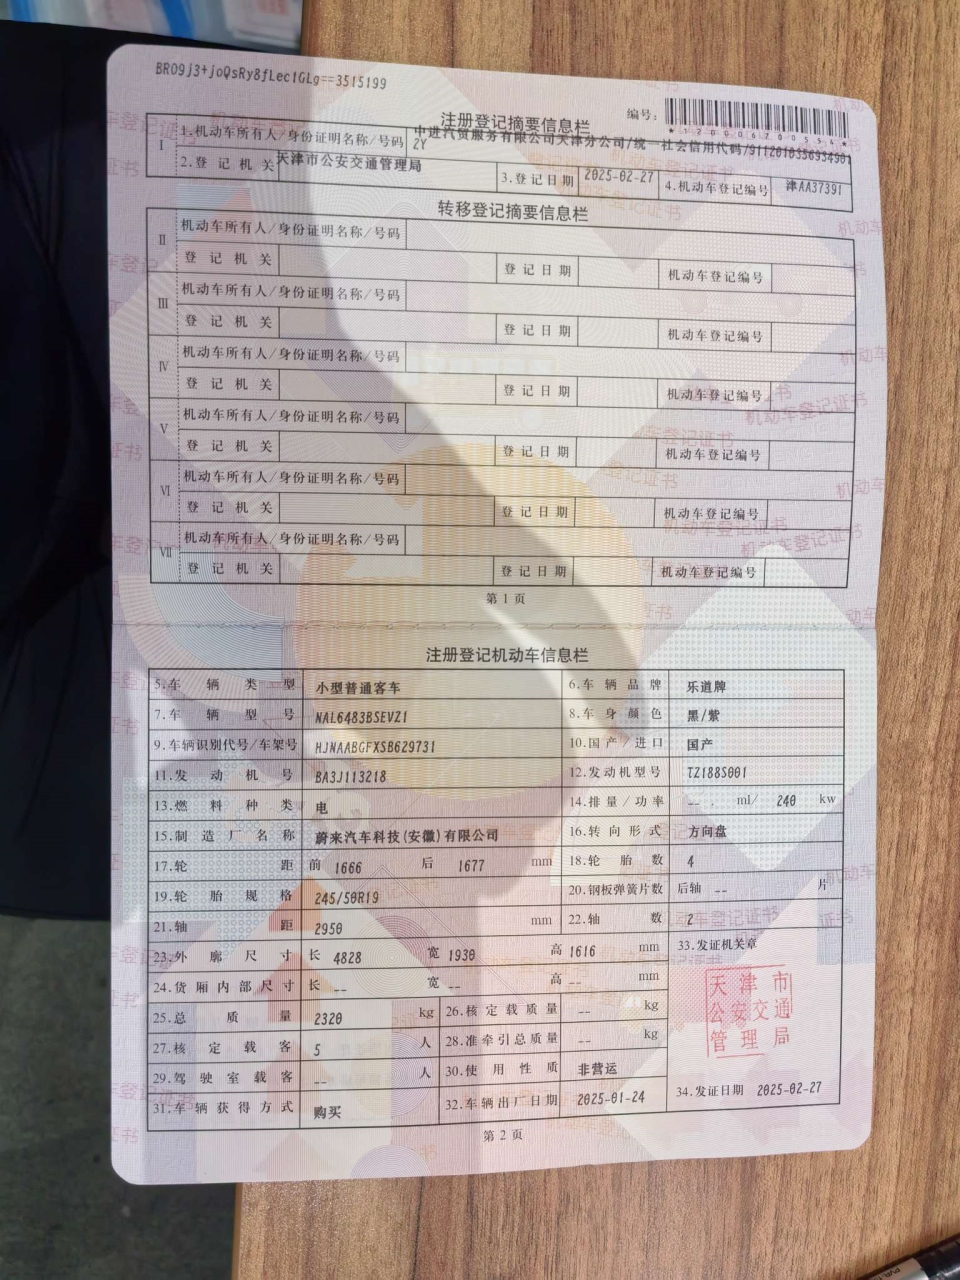 BRO9j3+joQsRy8fLec1GLg==3515199
编号:
*120006700554*
注册登记摘要信息栏
Ⅰ 1.机动车所有人/身份证明名称/号码 中进汽贸服务有限公司天津分公司/统一社会信用代码/
2Y
2.登记机关 天津市公安交通管理局 3.登记日期 2025-02-27 4.机动车登记编号 津AA37391
转移登记摘要信息栏
Ⅱ 机动车所有人/身份证明名称/号码
登记机关 登记日期 机动车登记编号
Ⅲ 机动车所有人/身份证明名称/号码
登记机关 登记日期 机动车登记编号
Ⅳ 机动车所有人/身份证明名称/号码
登记机关 登记日期 机动车登记编号
Ⅴ 机动车所有人/身份证明名称/号码
登记机关 登记日期 机动车登记编号
Ⅵ 机动车所有人/身份证明名称/号码
登记机关 登记日期 机动车登记编号
Ⅶ 机动车所有人/身份证明名称/号码
登记机关 登记日期 机动车登记编号
第1页
注册登记机动车信息栏
5.车辆类型 小型普通客车 6.车辆品牌 乐道牌
7.车辆型号 NAL6483BSEVZ1 8.车身颜色 黑/紫
9.车辆识别代号/车架号 HJNAABGFXSB629731 10.国产/进口 国产
11.发动机号 BA3J113218 12.发动机型号 TZ188S001
13.燃料种类 电 14.排量/功率 -- . ml/ 240 kw
15.制造厂名称 蔚来汽车科技(安徽)有限公司 16.转向形式 方向盘
17.轮距 前 1666 后 1677 mm 18.轮胎数 4
19.轮胎规格 245/50R19 20.钢板弹簧片数 后轴 -- 片
21.轴距 2950 mm 22.轴数 2
23.外廓尺寸 长 4828 宽 1930 高 1616 mm 33.发证机关章
24.货厢内部尺寸 长 -- 宽 -- 高 -- mm
天津市
公安交通
管理局
25.总质量 2320 kg 26.核定载质量 -- kg
27.核定载客 5 人 28.准牵引总质量 -- kg
29.驾驶室载客 -- 人 30.使用性质 非营运
31.车辆获得方式 购买 32.车辆出厂日期 2025-01-24 34.发证日期 2025-02-27
第2页